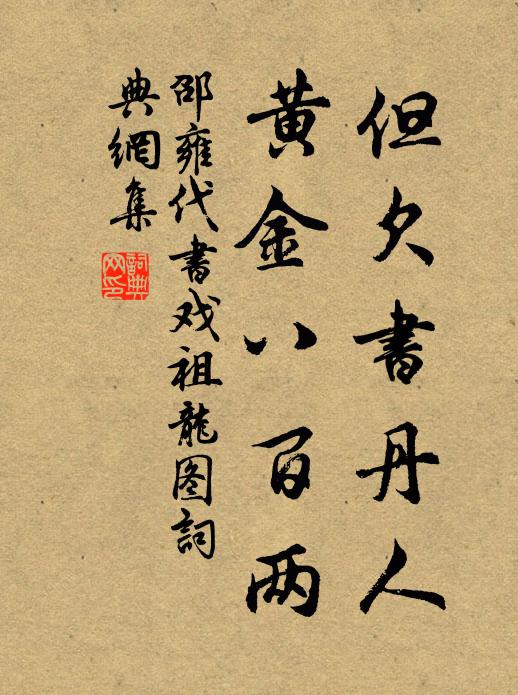 但欠書丹人
黄金八百两
邵雍代書戏祖龍图詞
典網集
詞典网印